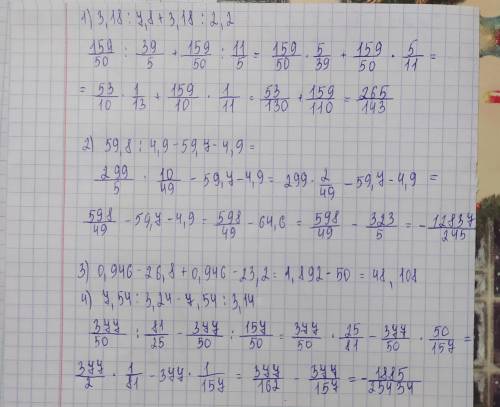 1) 3,18 : 7,8 + 3,18 : 2,2
159/50 : 39/5 + 159/50 : 11/5 = 159/50 · 5/39 + 159/50 · 5/11 =
= 53/10 · 1/13 + 159/10 · 1/11 = 53/130 + 159/110 = 265/143
2) 59,8 : 4,9 - 59,7 - 4,9 =
299/5 · 10/49 - 59,7 - 4,9 = 299 · 2/49 - 59,7 - 4,9 =
598/49 - 59,7 - 4,9 = 598/49 - 64,6 = 598/49 - 323/5 = - 12837/245
3) 0,946 - 26,8 + 0,946 - 23,2 = 1,892 - 50 = 48,108
4) 7,54 : 3,24 - 7,54 : 3,14
377/50 : 81/25 - 377/50 : 157/50 = 377/50 · 25/81 - 377/50 · 50/157 =
377/2 · 1/81 - 377 · 1/157 = 377/162 - 377/157 = - 1885/25434